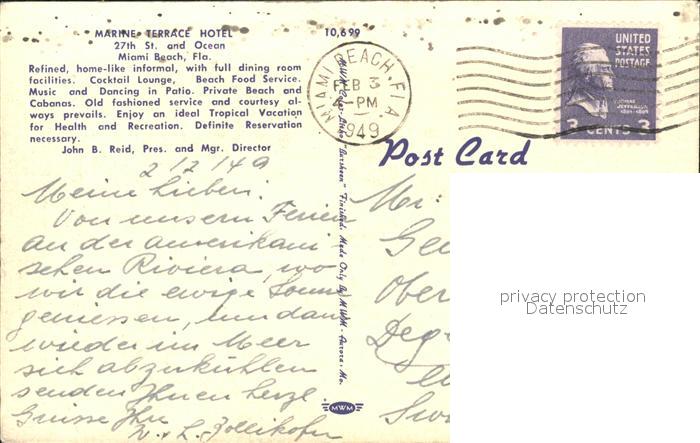 MARINE TERRACE HOTEL
27th St. and Ocean
Miami Beach, Fla.
Refined, home-like informal, with full dining room
facilities. Cocktail Lounge, Beach Food Service.
Music and Dancing in Patio. Private Beach and
Cabanas. Old fashioned service and courtesy al-
ways prevails. Enjoy an ideal Tropical Vacation
for Health and Recreation. Definite Reservation
necessary.
John B. Reid, Pres. and Mgr. Director
10,699
MIAMI BEACH, FLA.
FEB 3
4-PM
1949
UNITED
STATES
POSTAGE
THOMAS
JEFFERSON
1801-1809
3 CENTS 3
Post Card
2/2/49
Meine Lieben.
Von unsern Ferien
an der amerikani
schen Riviera, wo
wir die ewige Sonne
geniessen, um dann
wieder im Meer
sich abzukühlen
senden Ihnen herzl
Grüsse Ihr
W. & L. Zollikofer
"Finished. Made Only By MWM - Aurora, Mo.
MWM
Mr.
Ober
Deg
privacy protection
Datenschutz